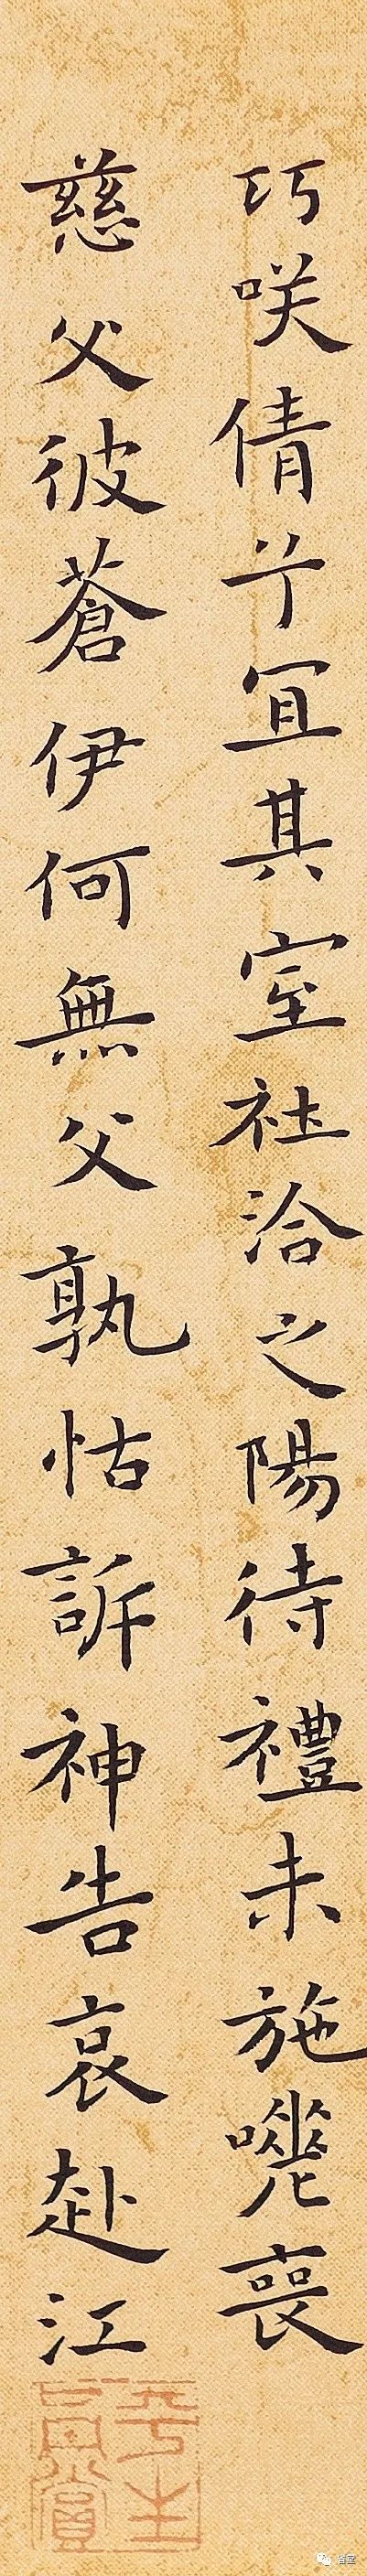 巧咲倩兮宜其室社洽之陽待禮未施嗟喪
慈父彼蒼伊何無父孰怙訴神告哀赴江
平生真賞